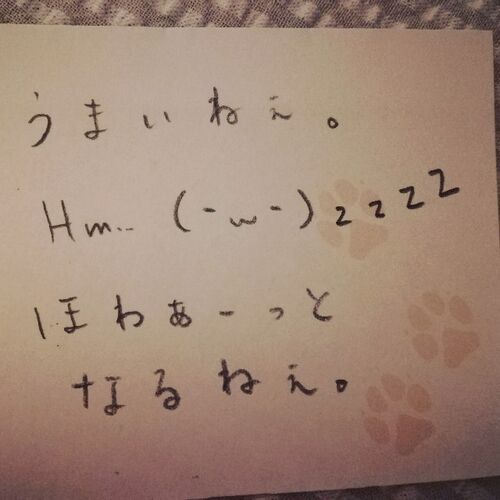 うまいねぇ。
Hm... (-w-)zzzz
ほわぁーっと
なるねぇ。